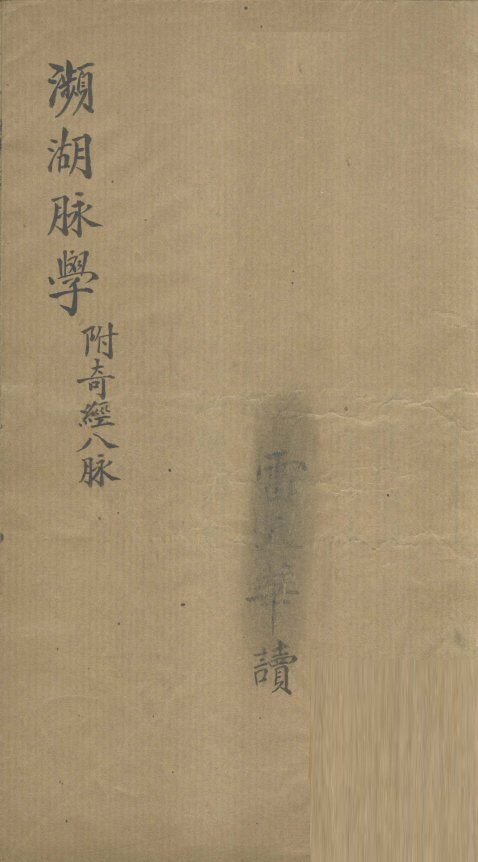 瀕湖脉學
附奇經八脉
雷華讀